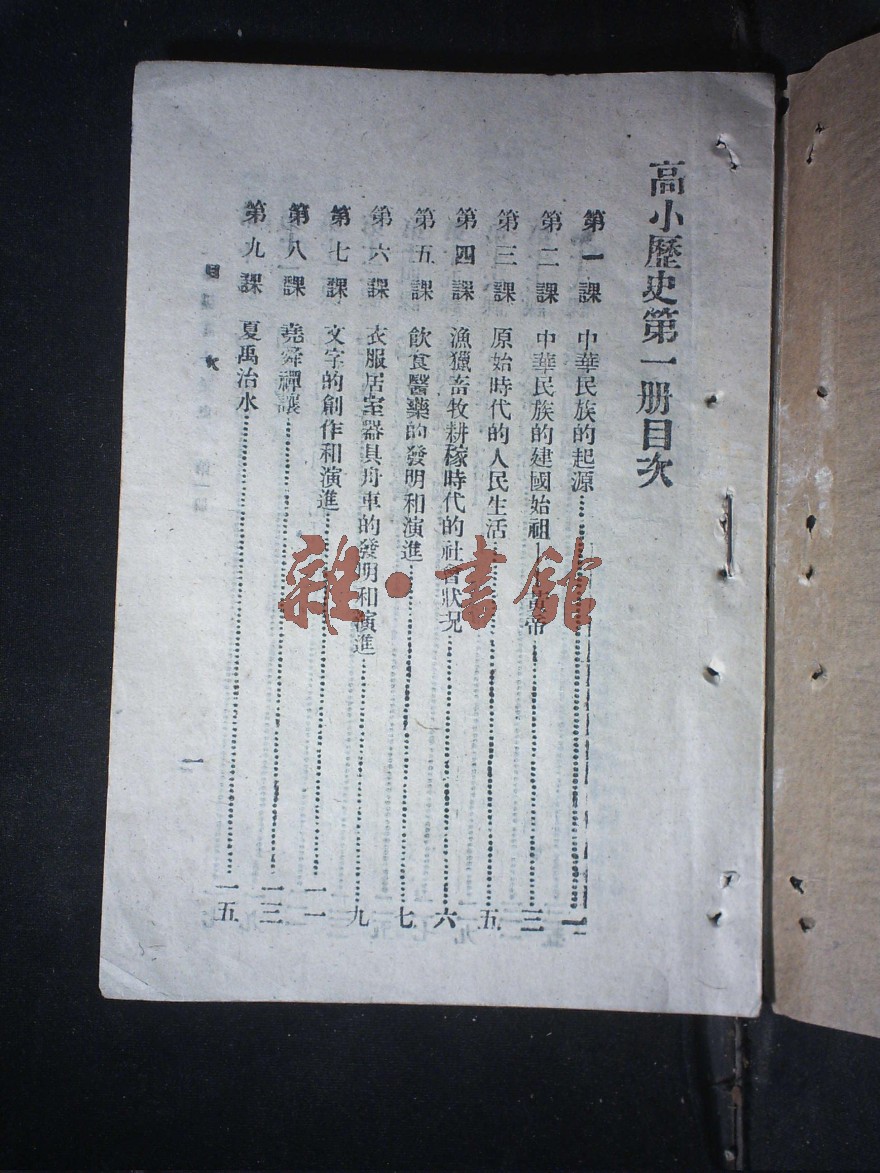 高小歷史第一册目次
第一課 中華民族的起源……一
第二課 中華民族的建國始祖——黃帝……三
第三課 原始時代的人民生活……五
第四課 漁獵畜牧耕稼時代的社會狀况……六
第五課 飲食醫藥的發明和演進……七
第六課 衣服居室器具舟車的發明和演進……九
第七課 文字的創作和演進……一一
第八課 堯舜禪讓……一三
第九課 夏禹治水……一五
目次
一
雜·書館